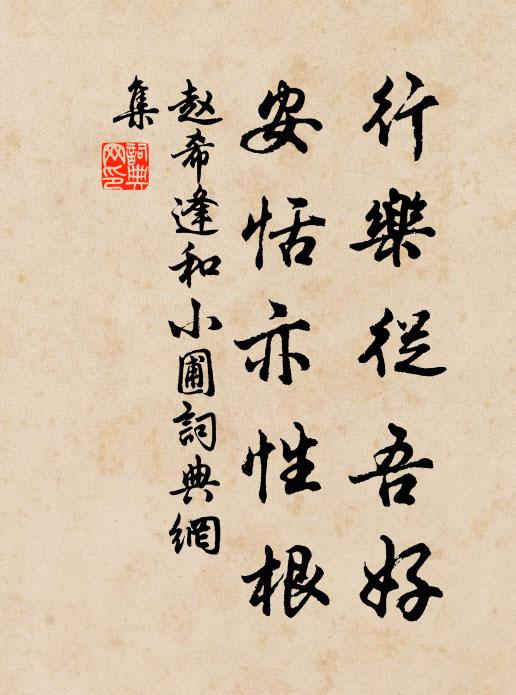 行樂從吾好
安恬亦性根
赵希逢和小圃詞典網
集
詞典
网印